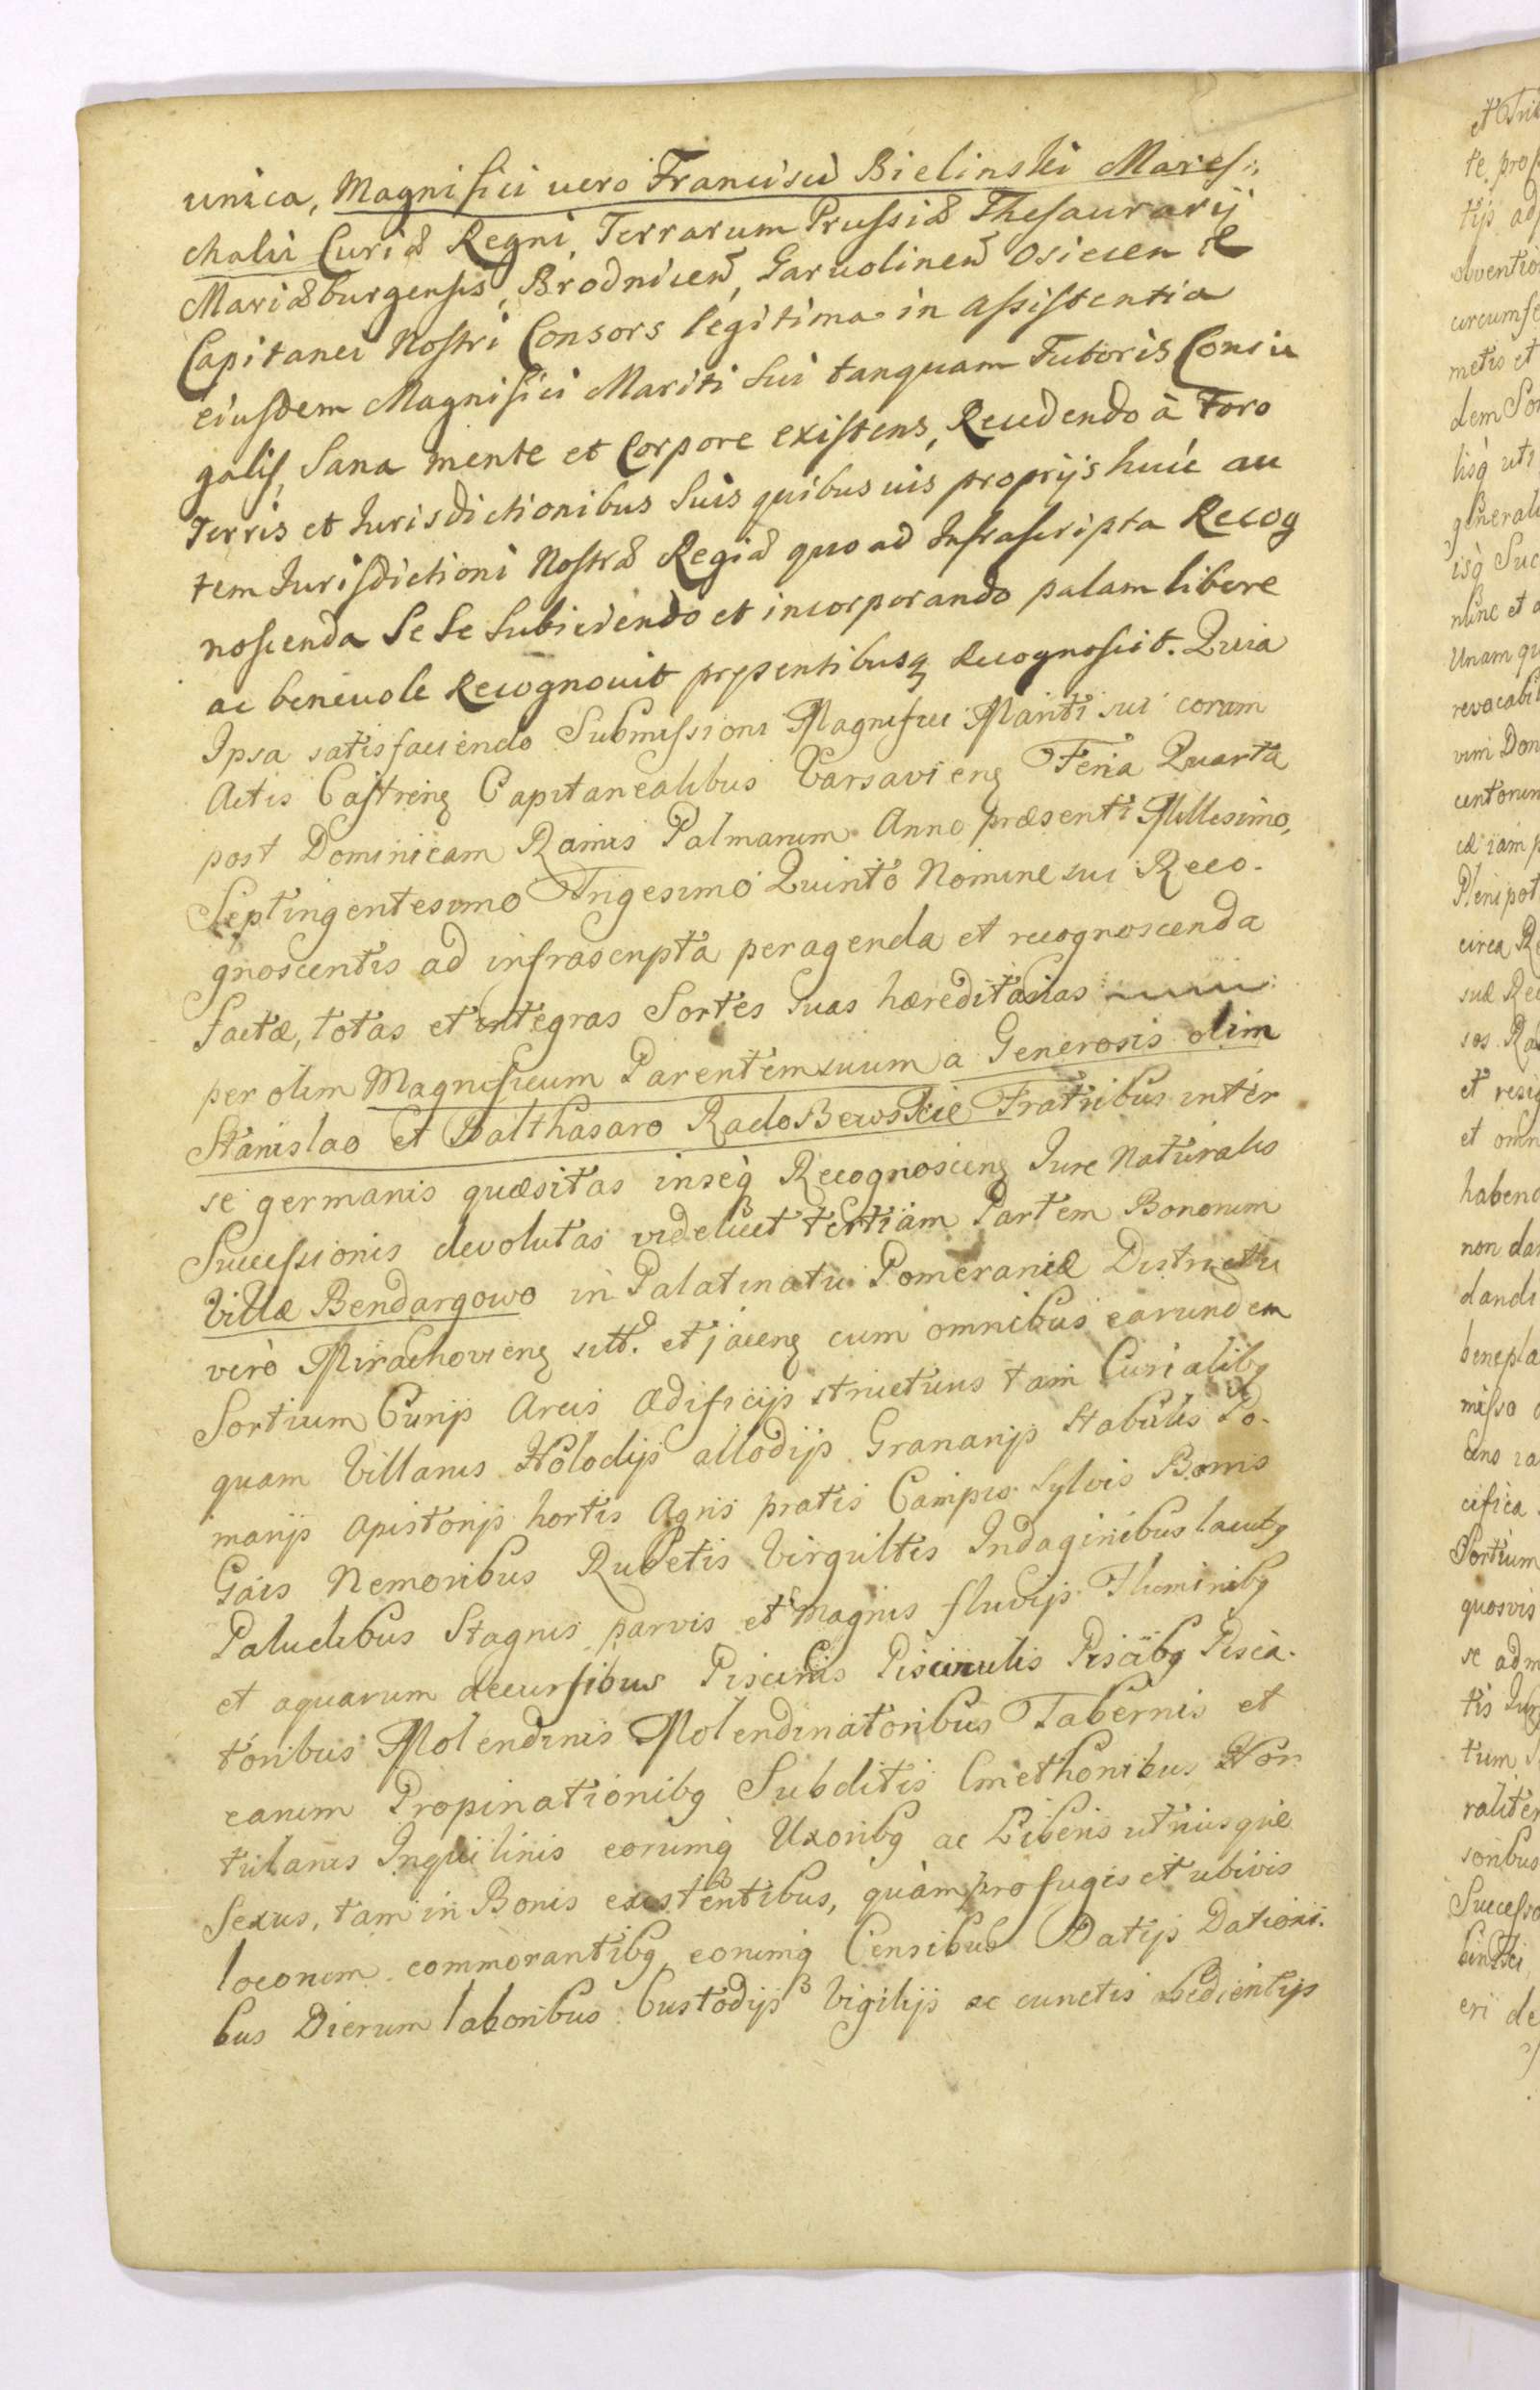 unica, Magnifici vero Francisci Bielinski Mares:,
chalii Curiæ Regni, Terrarum Prussiæ Thesaurarij
Mariæburgensis, Brodnicen, Garwolinen Osiecen &
Capitanei Nostri Consors legitima in assistentia
eiusdem Magnifici Mariti Sui tanquam Tutoris Coniu
galis, Sana mente et Corpore existens, Recedendo à Foro
Terris et Iurisdictionibus Suis quibusuis proprijs huic au
tem Iurisdictioni Nostræ Regiæ quo ad Infrascripta Recog
noscenda Se Se Subiiciendo et incorporando palam libere
ac beneuole Recognouit præsentibusq Recognoscit. Quia
Ipsa satisfaciendo Submissioni Magnifici Mariti sui coram
Actis Castren Capitanealibus Varsavien Feria Quarta
post Dominicam Ramis Palmarum Anno præsenti Millesimo,
Septingentesimo Trigesimo Quinto Nomine sui Reco-
gnoscentis ad infrascripta peragenda et recognoscenda
factæ, totas et integras Sortes suas hæreditarias
per olim Magnificum Parentem suum a Generosis olim
Stanislao et Balthasaro Radobewskie Fratribus inter
se germanis quæsitas inseq Recognoscen Jure Naturalis
Successionis devolutas videlicet tertiam Partem Bonorum
Villæ Bendargowo in Palatinatu Pomeraniæ Districtu
verò Mirachovien sitt. et jacen cum omnibus earundem
Sortium Curijs Arcis Ædificijs structuris tam Curialibq
quam Villanis Holodijs allodijs Granarijs Stabulis Po-
marijs Apistorijs hortis Agris pratis Campis Sylvis Borris
Gais Nemoribus Rubetis Virgultis Indaginibus lacubq
Paludibus Stagnis parvis et magnis fluvijs Fluminibq
et aquarum decursibus Piscinis Piscinulis Piscibq Pisca-
toribus Molendinis Molendinatoribus Tabernis et
earum Propinationibq Subditis Cmethonibus Hor
tulanis Inquilinis eorumq Uxoribq ac Liberis utriusque
Sexus, tam in Bonis existentibus, quàm profugis et ubivis
locorum commorantibq, eorumq Censibus Datijs Dationi-
bus Dierum laboribus Custodijs Vigilijs ac cunctis obedientijs